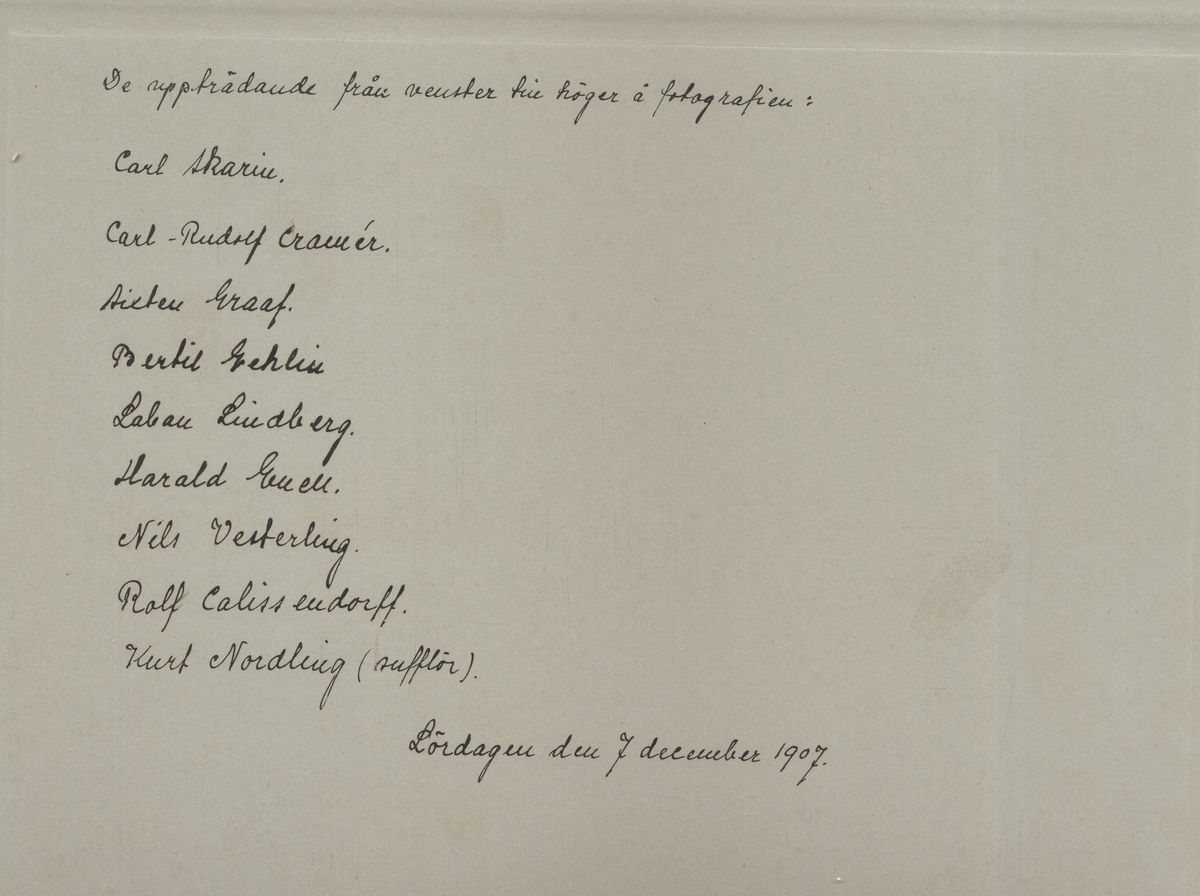 De uppträdande från venster till höger å fotografien:
Carl Skarin.
Carl-Rudolf Cramér.
Sixten Graaf.
Bertil Gehlin
Laban Lindberg.
Harald
Nils Vesterling.
Rolf Calissendorff.
Kurt Nordling (sufflör).
Lördagen den 7 december 1907.